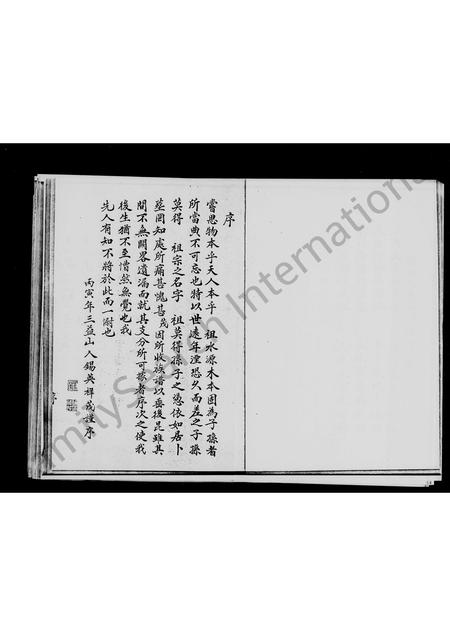 序
嘗思物本乎天人本乎 祖水源木本固為子孫者
所當典不可忘也特以世遠年湮恐久而差之子孫
莫得 祖宗之名字 祖莫得孫子之憑依如居卜
墓罔知處所痛甚愧甚茂因所收族譜以垂後昆雖其
間不無闕畧遺漏而就其支分所可考者序次之使我
後生猶不至懵然無覺也我
先人有知不將於此而一慰也
丙寅年三益山人錫英祥茂謹序
FamilySearch International